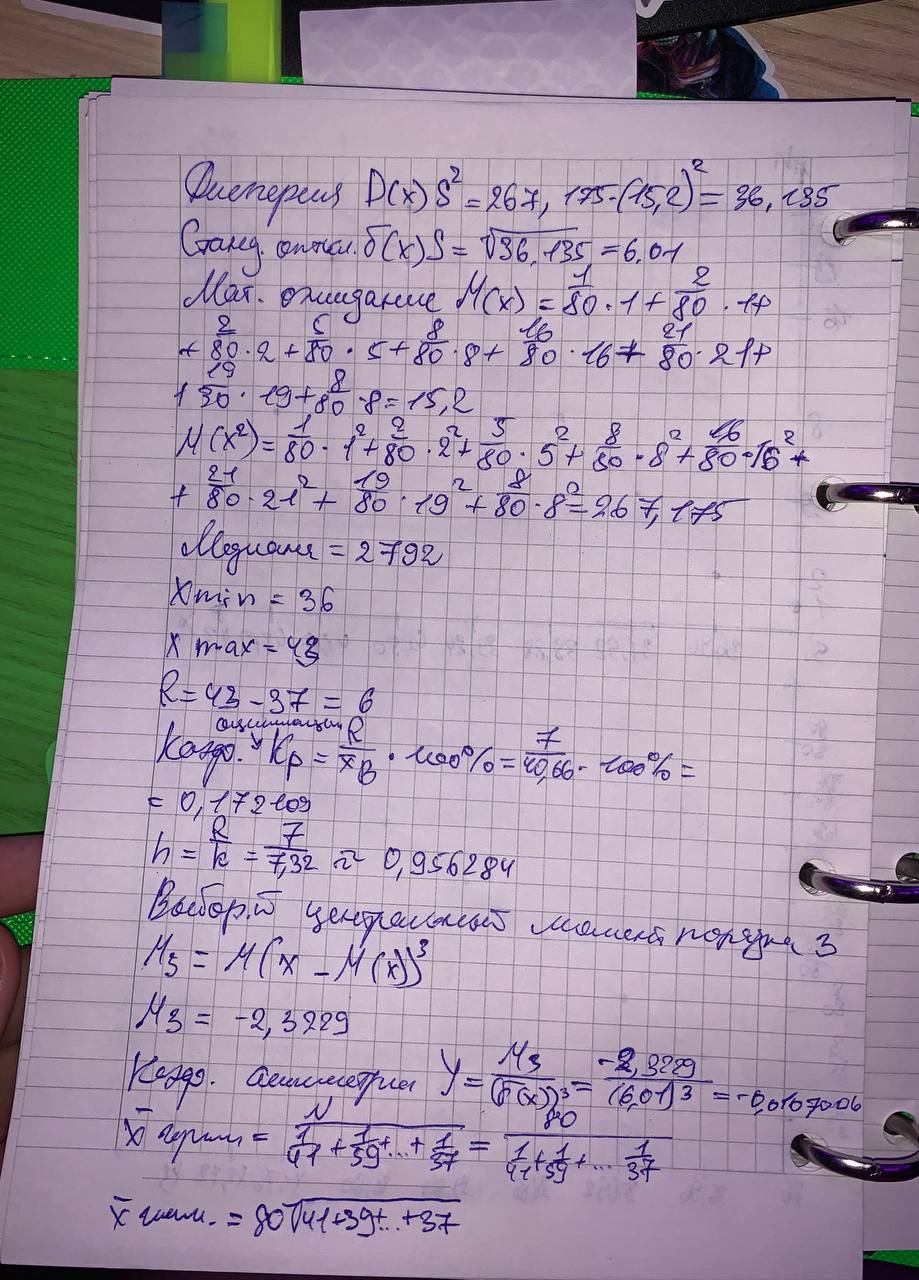 Дисперсия D(x) S² = 267,175-(15,2)² = 36,135
Станд. откл. б(x) S = √36,135 = 6,01
Мат. ожидание M(x) = 1/80 · 1 + 2/80 · 1+
+ 2/80 · 2 + 5/80 · 5 + 8/80 · 8 + 16/80 · 16 + 21/80 · 21+
+ 19/30 · 19 + 8/80 · 8 = 15,2
M(x²) = 1/80 · 1² + 2/80 · 2² + 5/80 · 5² + 8/80 · 8² + 16/80 · 16² +
+ 21/80 · 21² + 19/80 · 19² + 8/80 · 8² = 267,175
Медиана = 2792
Xmin = 36
X max = 43
R = 43 - 37 = 6
Коэф. осцилляции Kр = R/x̄В · 100% = 7/40,66 · 100% =
= 0,172109
h = R/k = 7/7,32 ≈ 0,956284
Выбор.й центральный момент порядка 3
M3 = M(x - M(x))³
M3 = -2,3229
Коэф. асимметрии Y = M3/(б(x))³ = -2,3229/(6,01)³ = -0,0107006
x̄ гарм = N/(1/41 + 1/39 + ... + 1/37) = 80/(1/41 + 1/39 + ... 1/37)
x̄ = 80√41+39+...+37